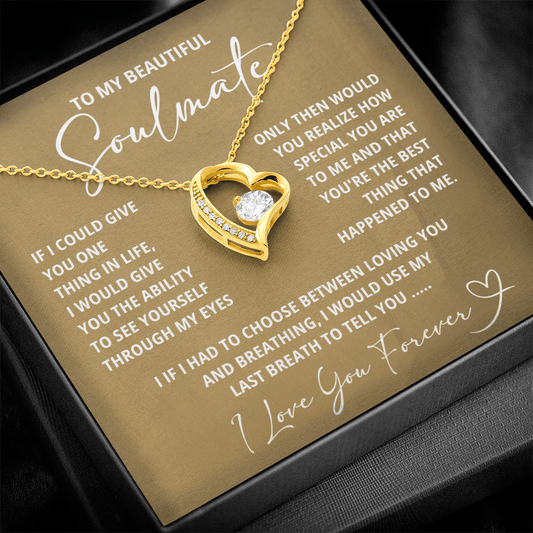 TO MY BEAUTIFUL
Soulmate
IF I COULD GIVE
YOU ONE
THING IN LIFE,
I WOULD GIVE
YOU THE ABILITY
TO SEE YOURSELF
THROUGH MY EYES
ONLY THEN WOULD
YOU REALIZE HOW
SPECIAL YOU ARE
TO ME AND THAT
YOU'RE THE BEST
THING THAT
HAPPENED TO ME.
I IF I HAD TO CHOOSE BETWEEN LOVING YOU
AND BREATHING, I WOULD USE MY
LAST BREATH TO TELL YOU .....
I Love You Forever